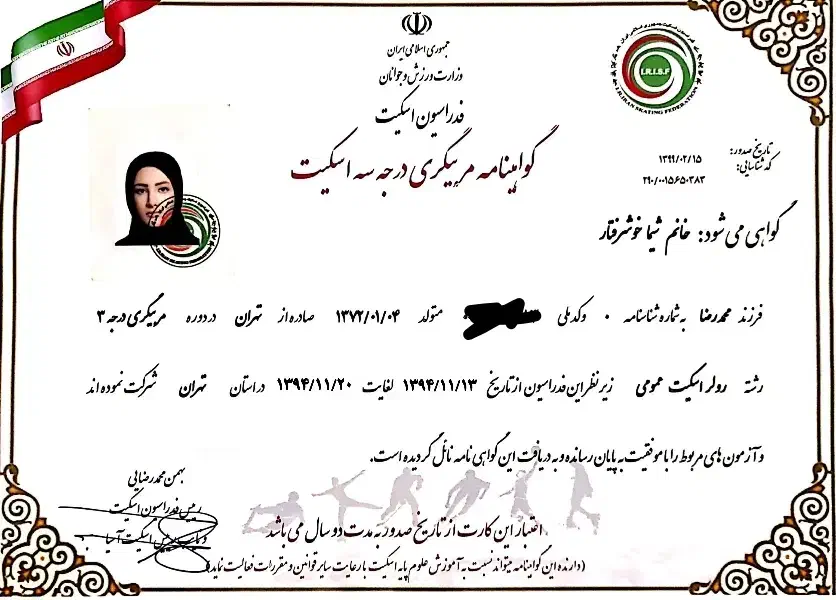 جمهوری اسلامی ایران
وزارت ورزش و جوانان
فدراسیون اسکیت
گواهینامه مربیگری درجه سه اسکیت
I.R.I.S.F
I.R.IRAN SKATING FEDERATION
تاریخ صدور: ۱۳۹۹/۰۲/۱۵
کد شناسایی: ۲۹۰/۰۰۱۵۶۵۰۳۸۳
گواهی می شود: خانم شیما خوشرفتار
فرزند محمدرضا به شماره شناسنامه ۰ و کد ملی متولد ۱۳۷۲/۰۱/۰۴ صادره از تهران در دوره مربیگری درجه ۳
رشته رولر اسکیت عمومی زیر نظر این فدراسیون از تاریخ ۱۳۹۴/۱۱/۱۳ لغایت ۱۳۹۴/۱۱/۲۰ در استان تهران شرکت نموده اند
و آزمون های مربوط را با موفقیت به پایان رسانده و به دریافت این گواهی نامه نائل گردیده است.
بهمن محمدرضایی
رییس فدراسیون اسکیت
و نایب رییس اسکیت آسیا
اعتبار این کارت از تاریخ صدور به مدت دو سال می باشد
(دارنده این گواهینامه میتواند نسبت به آموزش علوم پایه اسکیت با رعایت سایر قوانین و مقررات فعالیت نماید)